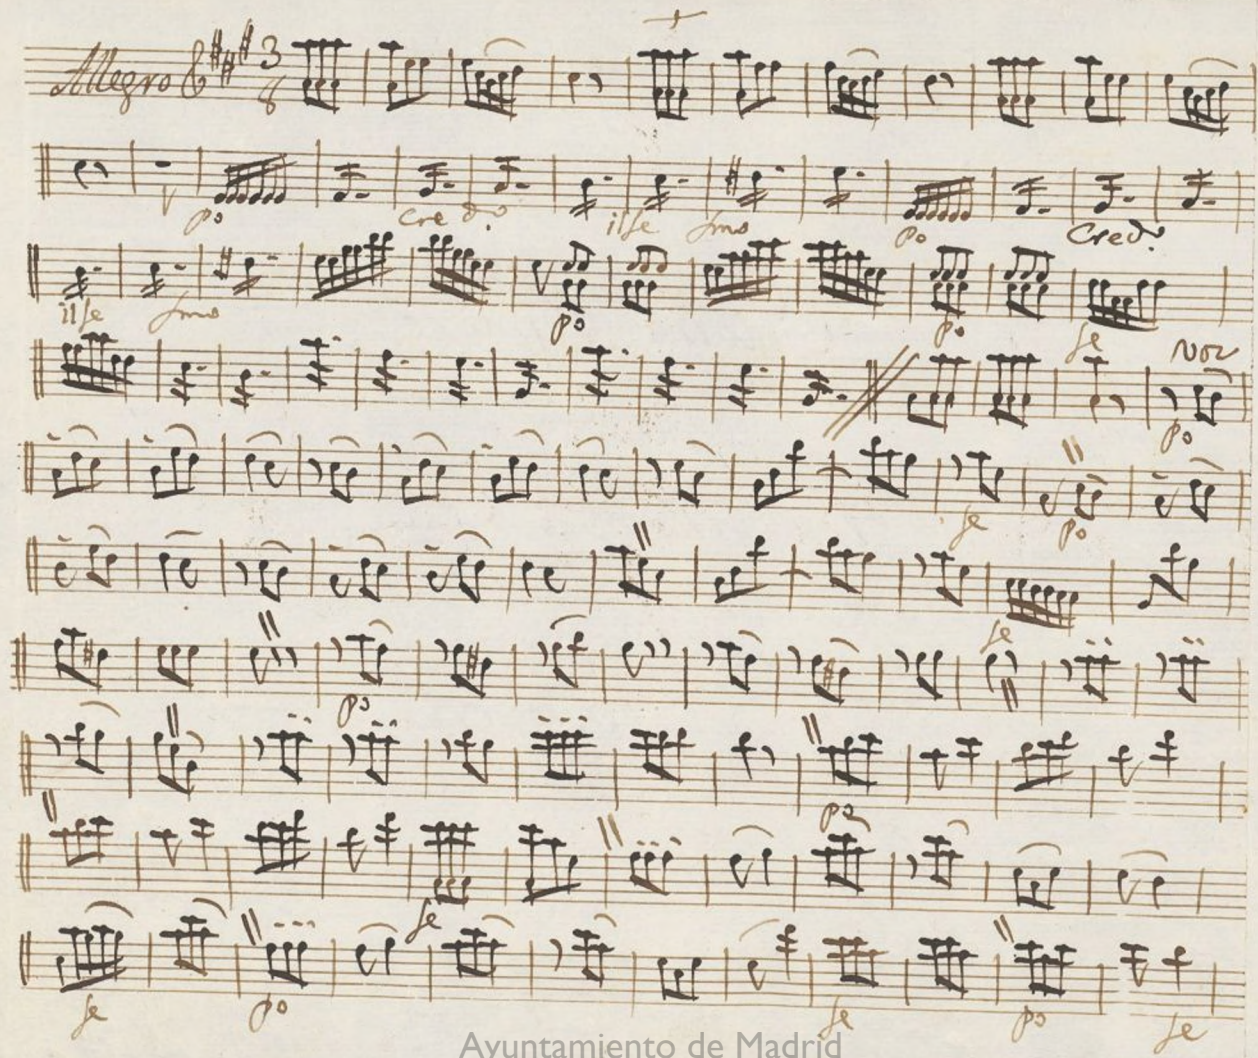 Allegro 3
8
po Cre do. ilfe fmo po Cred.o
ilfe fmo po po fe Voz
po
fe po
fe
po
po
fe
fe po fe po fe
Ayuntamiento de Madrid